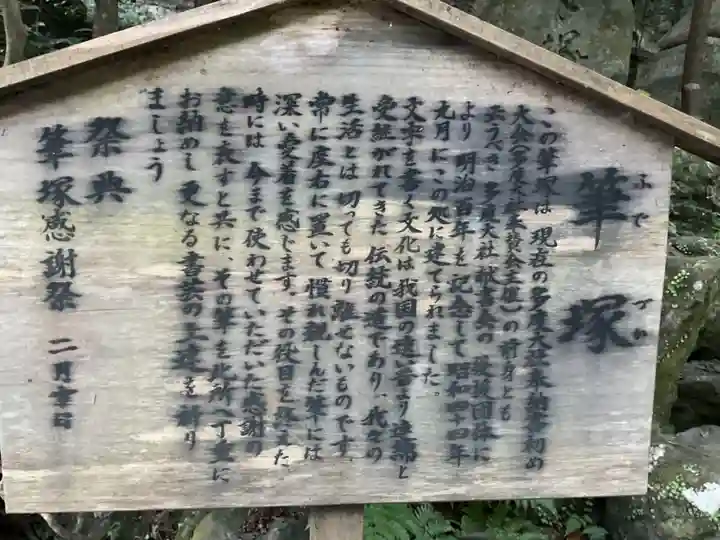 筆塚
ふでづか
この筆塚は 現在の多度大社奉納書初め
大会(多度大社奉賛会主催)の前身とも
云うべき 多度大社献書会の 後援団体に
より 明治百年を記念して 昭和四十四年
九月 にこの処に建てられました。
文字を書く文化は我国の遠い昔より連綿と
受継がれてきた 伝統の道であり、我々の
生活とは 切っても切り離せないものです。
常に座右に置いて 慣れ親しんだ筆には
深い愛着を感じます。その役目を終えた
時には 今まで使わせていただいた感謝の
意を表すと共に、その筆を此所へ丁重に
お納めし 更なる書芸の上達を祈り
ましょう
祭典
筆塚感謝祭 二月 日